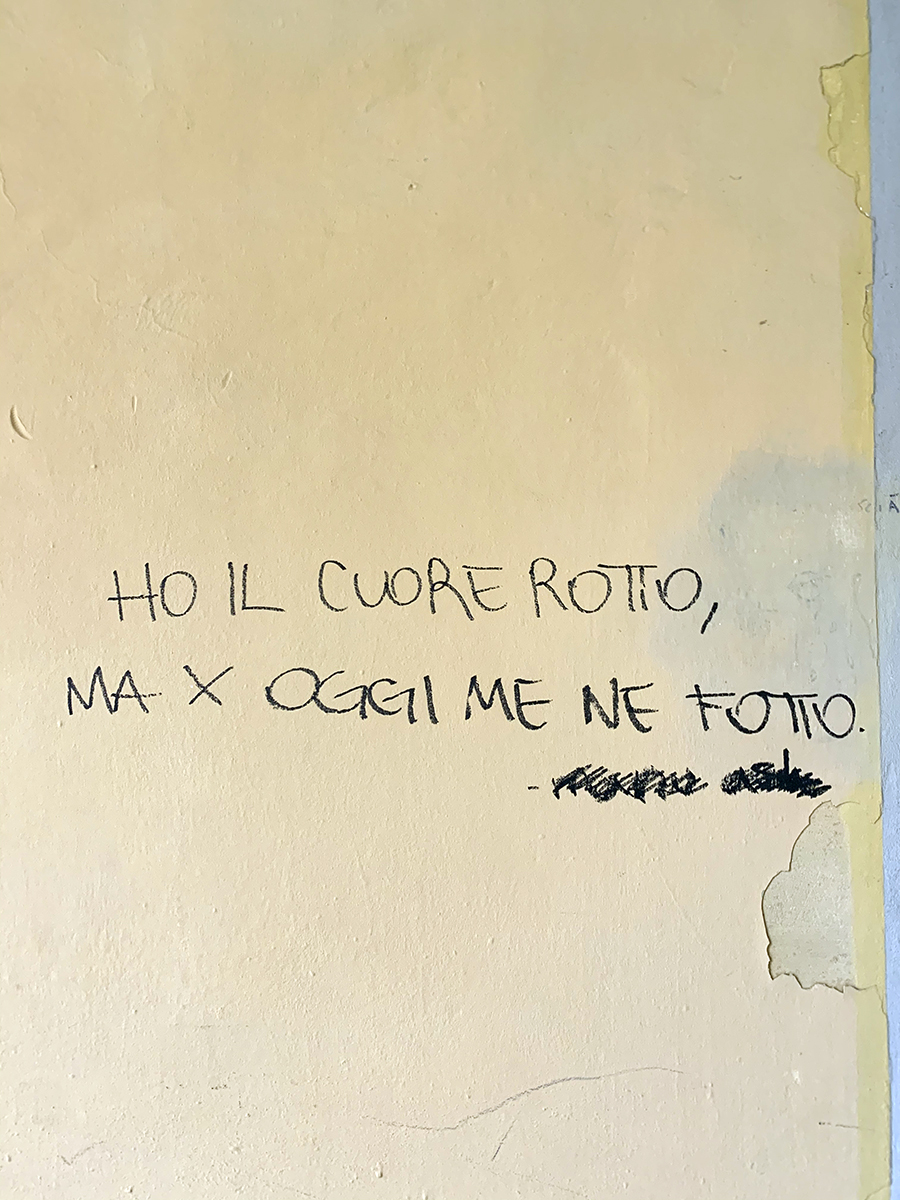 HO IL CUORE ROTTO,
MA X OGGI ME NE FOTTO.